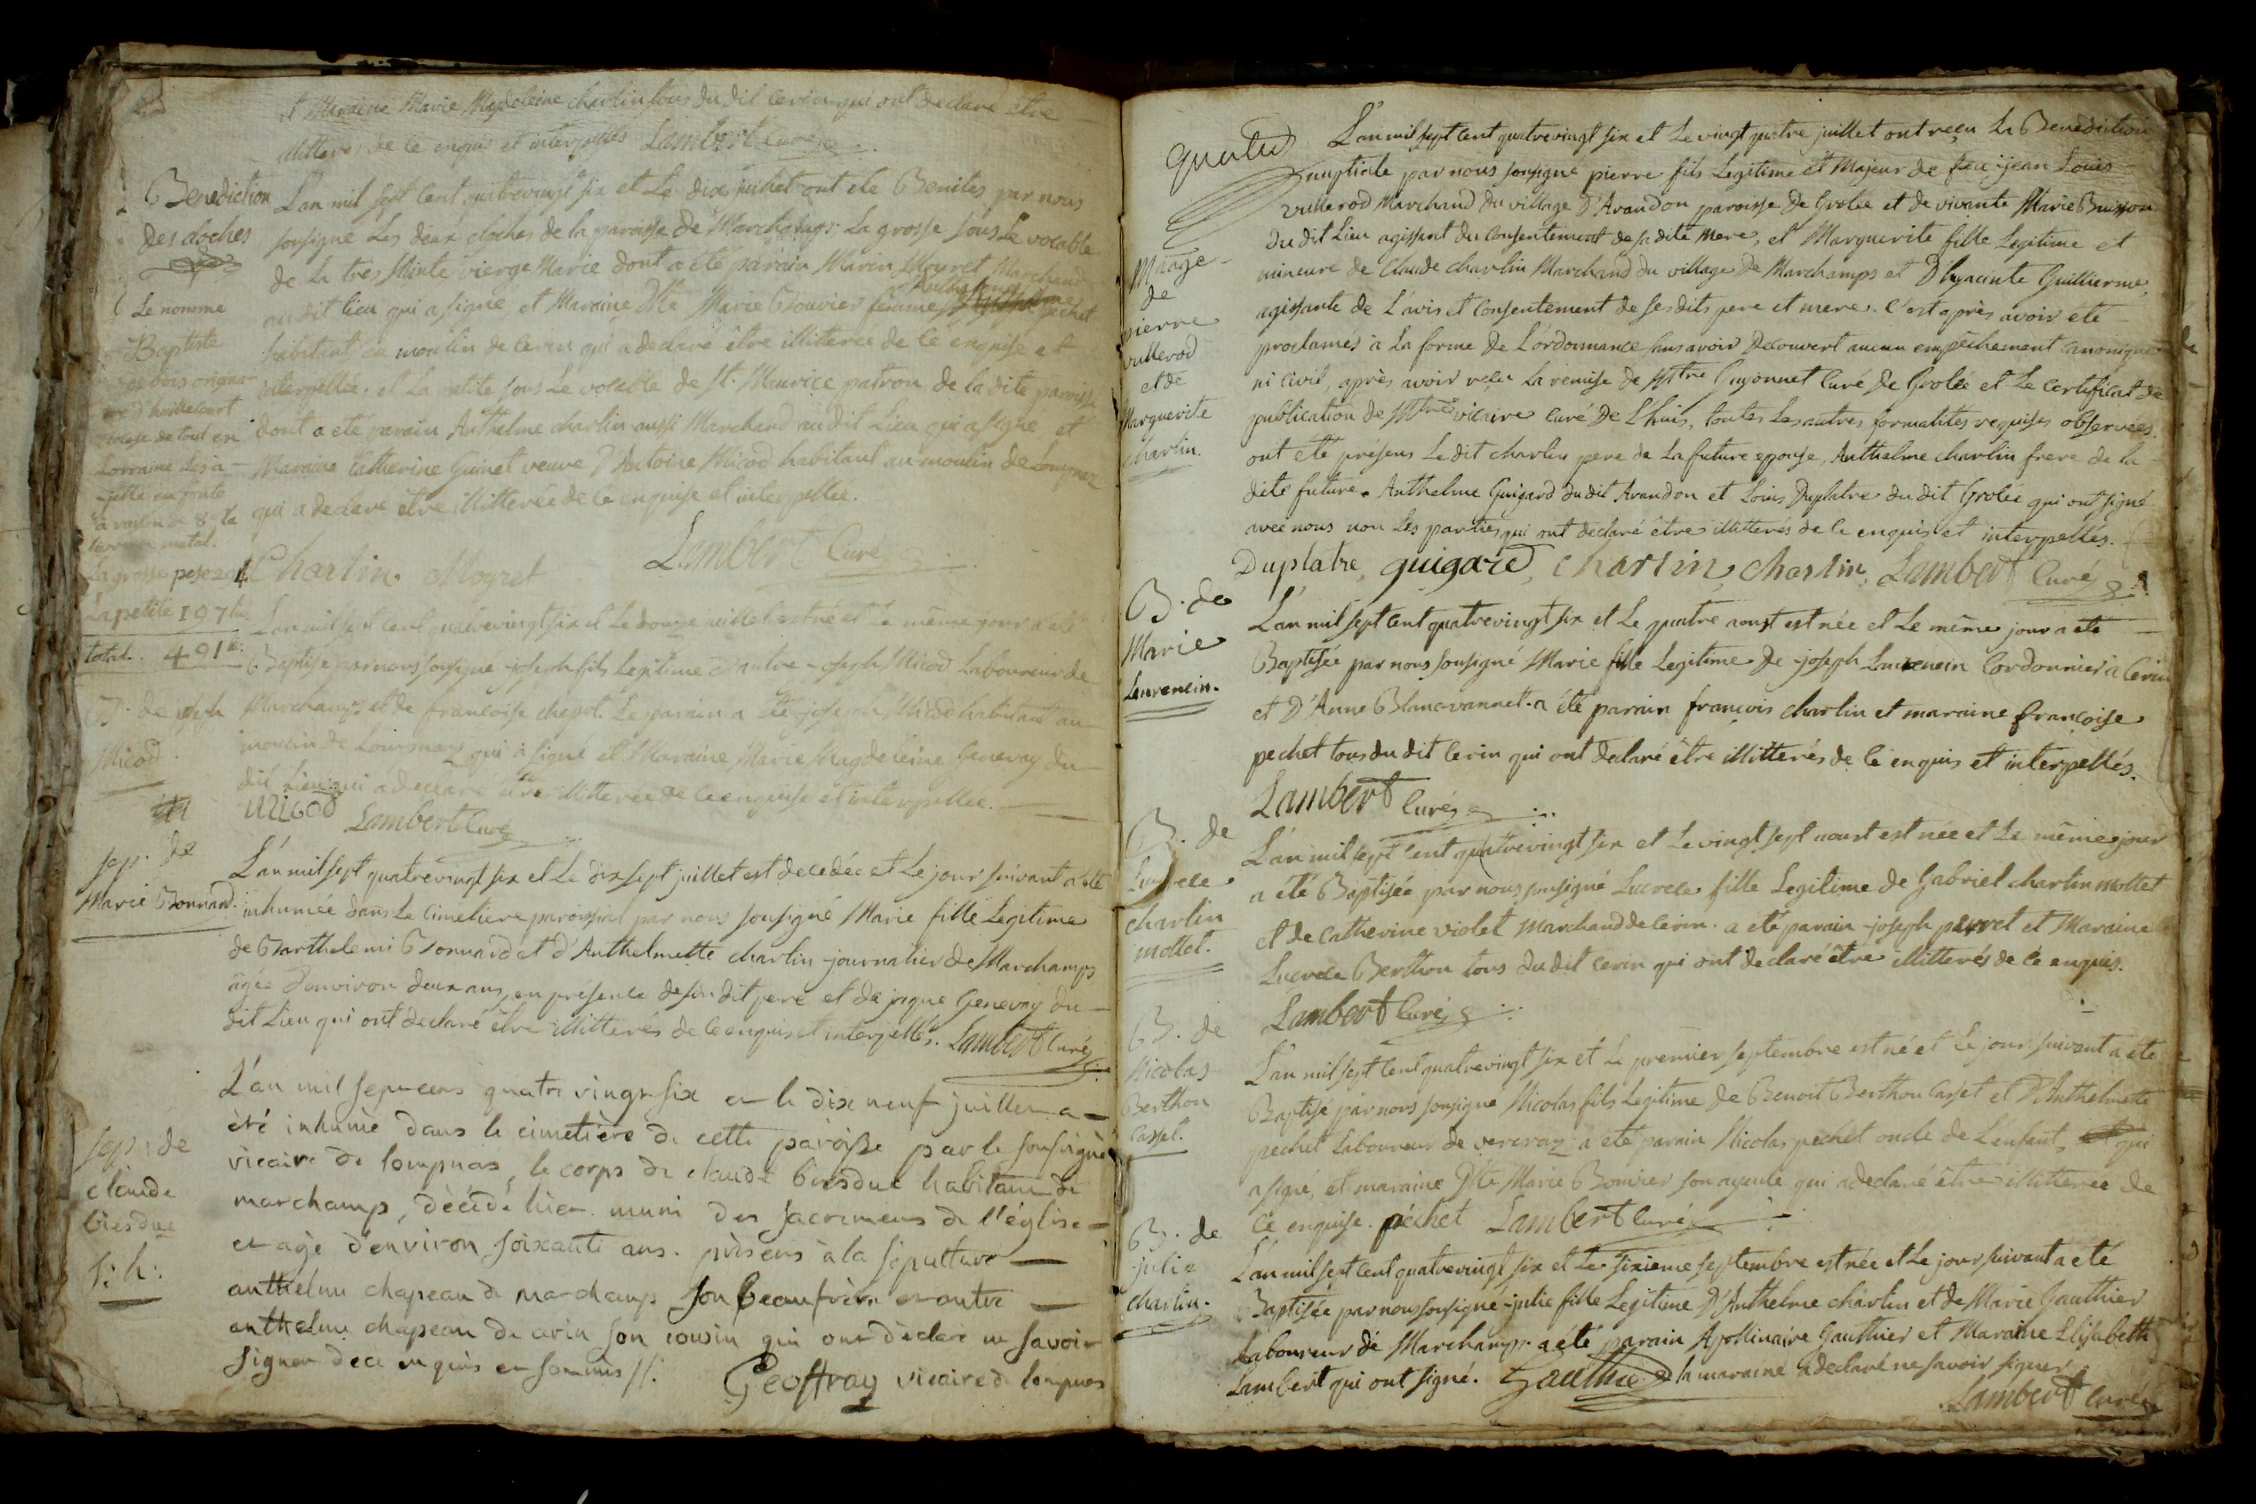 et Maraine Marie Magdeleine charlin tous du dit cerin qui ont declaré etre
illitterés de ce enquis et interpellés Lambert Curé
Benediction
Des cloches
L'an mil sept cent quatrevingt six et Le dix juillet ont été Benites par nous
sousigné Les deux cloches de la paroisse de Marchamps. La grosse sous Le vocable
de La tres Sainte vierge Marie dont a été parain Marin Mogret Marchand
au dit lieu qui a signé, et Maraine Marie Bouvier femme Anthelme pechet
habitant au moulin de cerin qui a declaré être illitterée de ce enquise et
interpellée. et La petite sous Le vocable de St. Maurice patron de la dite paroisse
dont a été parain Anthelme charlin aussi Marchand au dit Lieu qui a signé, et
Maraine Catherine Guinet veuve d'Antoine Micod habitant au moulin de
qui a declaré être illitterée de ce enquise et interpellée.
Le nommé
Baptiste
Lorraine Les a
La grosse pese
La petite 197
total. 491
Charlin. Mogret Lambert Curé
B. de joseph
Micod
L'an mil sept cent quatrevingt six et Le douze juillet est né et Le même jour a été
Baptisé par nous sousigné joseph fils Legitime d'autre joseph Micod Laboureur de
Marchamps et de francoise chepot. Le parain a été joseph Micod habitant au
moulin de qui a signé et Maraine Marie Magdeleine Genevay du
dit Lieu qui a declaré être illitterée de ce enquise et interpellée.
Micod Lambert Curé
sep. de
Marie Bonnard.
L'an mil sept quatrevingt six et Le dix sept juillet est decedée et Le jour suivant a été
inhumée dans Le cimetiere paroissial par nous sousigné Marie fille Legitime
de Barthelemi Bonnard et d'Anthelmette charlin journalier de Marchamps
agée d'environ deux ans, en présence de son dit pere et de jaque Genevay du
dit Lieu qui ont declaré être illitterés de ce enquis et interpellés. Lambert Curé
sep. de
claude
L'an mil sept cens quatre vingt six et le dix neuf juillet a
été inhumé dans le cimetière de cette paroisse par le sousigné
vicaire de lompnas, le corps de claude habitant de
marchamp, décédé hier muni des sacremens de l'église
et agé d'environ soixante ans. présens à la sépulture
anthelme chapeau de marchamp son beaufrère et autre
anthelme chapeau de cerin son cousin qui ont déclaré ne savoir
signer de ce enquis et sommés //.
Geoffray vicaire de lompnas
Mage
de
pierre
vullerod
et de
Marguerite
charlin.
L'an mil sept cent quatrevingt six et Le vingt quatre juillet ont reçu La Benediction
nuptiale par nous sousigné pierre fils Legitime et Majeur de feu jean Louis
vullerod Marchand du village d'Avandon paroisse de Grolée et de vivante Marie Buisson
du dit Lieu agissant du consentement de sa dite mere, et Marguerite fille Legitime et
mineure de Claude charlin Marchand du village de Marchamps et d'hyacinte Guillierme
agissante de L'avis et consentement de ses dits pere et mere. c'est après avoir été
proclamés à La forme de L'ordonnance sans avoir decouvert aucun empechement canonique
ni civil, après avoir reçu La remise de Mtre Guyonnet Curé de Grolée et Le certificat de
publication de Mtre vicaire curé de L'huis, toutes Les autres formalités requises observées.
ont été présens Le dit charlin pere de La future epouse, Anthelme charlin frere de la
dite future. Anthelme Guigard du dit Avandon et Louis Duplatre du dit Grolée qui ont signé
avec nous non Les parties qui ont declaré être illitterés de ce enquis et interpellés.
Duplatre, guigard, charlin, charlin, Lambert Curé
B. de
Marie
Laurencin.
L'an mil sept cent quatrevingt six et Le quatre aoust est née et Le même jour a été
Baptisée par nous sousigné Marie fille Legitime de joseph Laurencin Cordonnier à Cerin
et d'Anne Blanc-vannet. a été parain françois charlin et maraine françoise
pechet tous du dit Cerin qui ont declaré être illitterés de ce enquis et interpellés.
Lambert Curé
B. de
Lucrece
charlin
mollet.
L'an mil sept cent quatrevingt six et Le vingt sept aoust est née et Le même jour
a été Baptisée par nous sousigné Lucrece fille Legitime de Gabriel charlin mollet
et de Catherine violet Marchand de Cerin. a été parain joseph perret et Maraine
Lucrece Berthon tous du dit cerin qui ont declaré être illitterés de ce enquis.
Lambert Curé
B. de
Nicolas
Berthon
Casset.
L'an mil sept cent quatrevingt six et Le premier septembre est né et Le jour suivant a été
Baptisé par nous sousigné Nicolas fils Legitime de Benoit Berthon Casset et d'Anthelmette
pechet Laboureur de vercraz a été parain Nicolas pechet oncle de L'enfant, qui
a signé, et maraine Marie Bouvier son ayeule qui a declaré être illitterée de
ce enquise. péchet Lambert Curé
B. de
julie
charlin.
L'an mil sept cent quatrevingt six et Le sixieme septembre est née et Le jour suivant a été
Baptisée par nous sousigné julie fille Legitime d'Anthelme charlin et de Marie Gauthier
Laboureur de Marchamps. a été parain Apollinaire Gauthier et Maraine Elisabeth
Lambert qui ont signé. Gauthier la maraine a declaré ne savoir signer
Lambert Curé